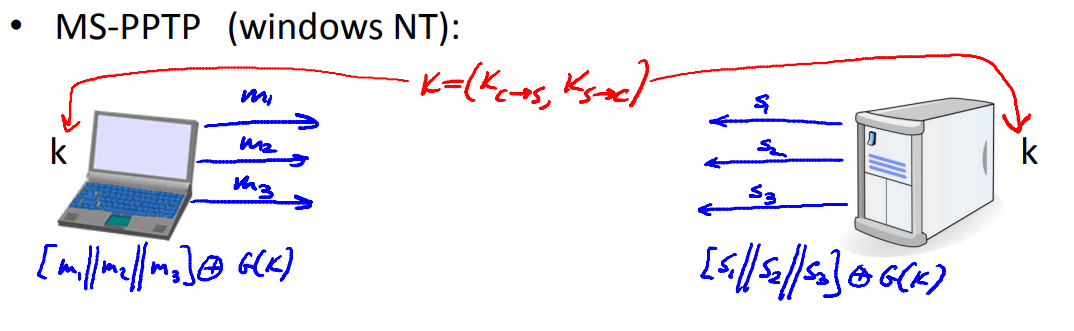 • MS-PPTP (windows NT):
K=(K_{C→S}, K_{S→C})
m₁
m₂
m₃
S₁
S₂
S₃
k
k
[m₁||m₂||m₃] ⊕ G(K)
[S₁||S₂||S₃] ⊕ G(K)